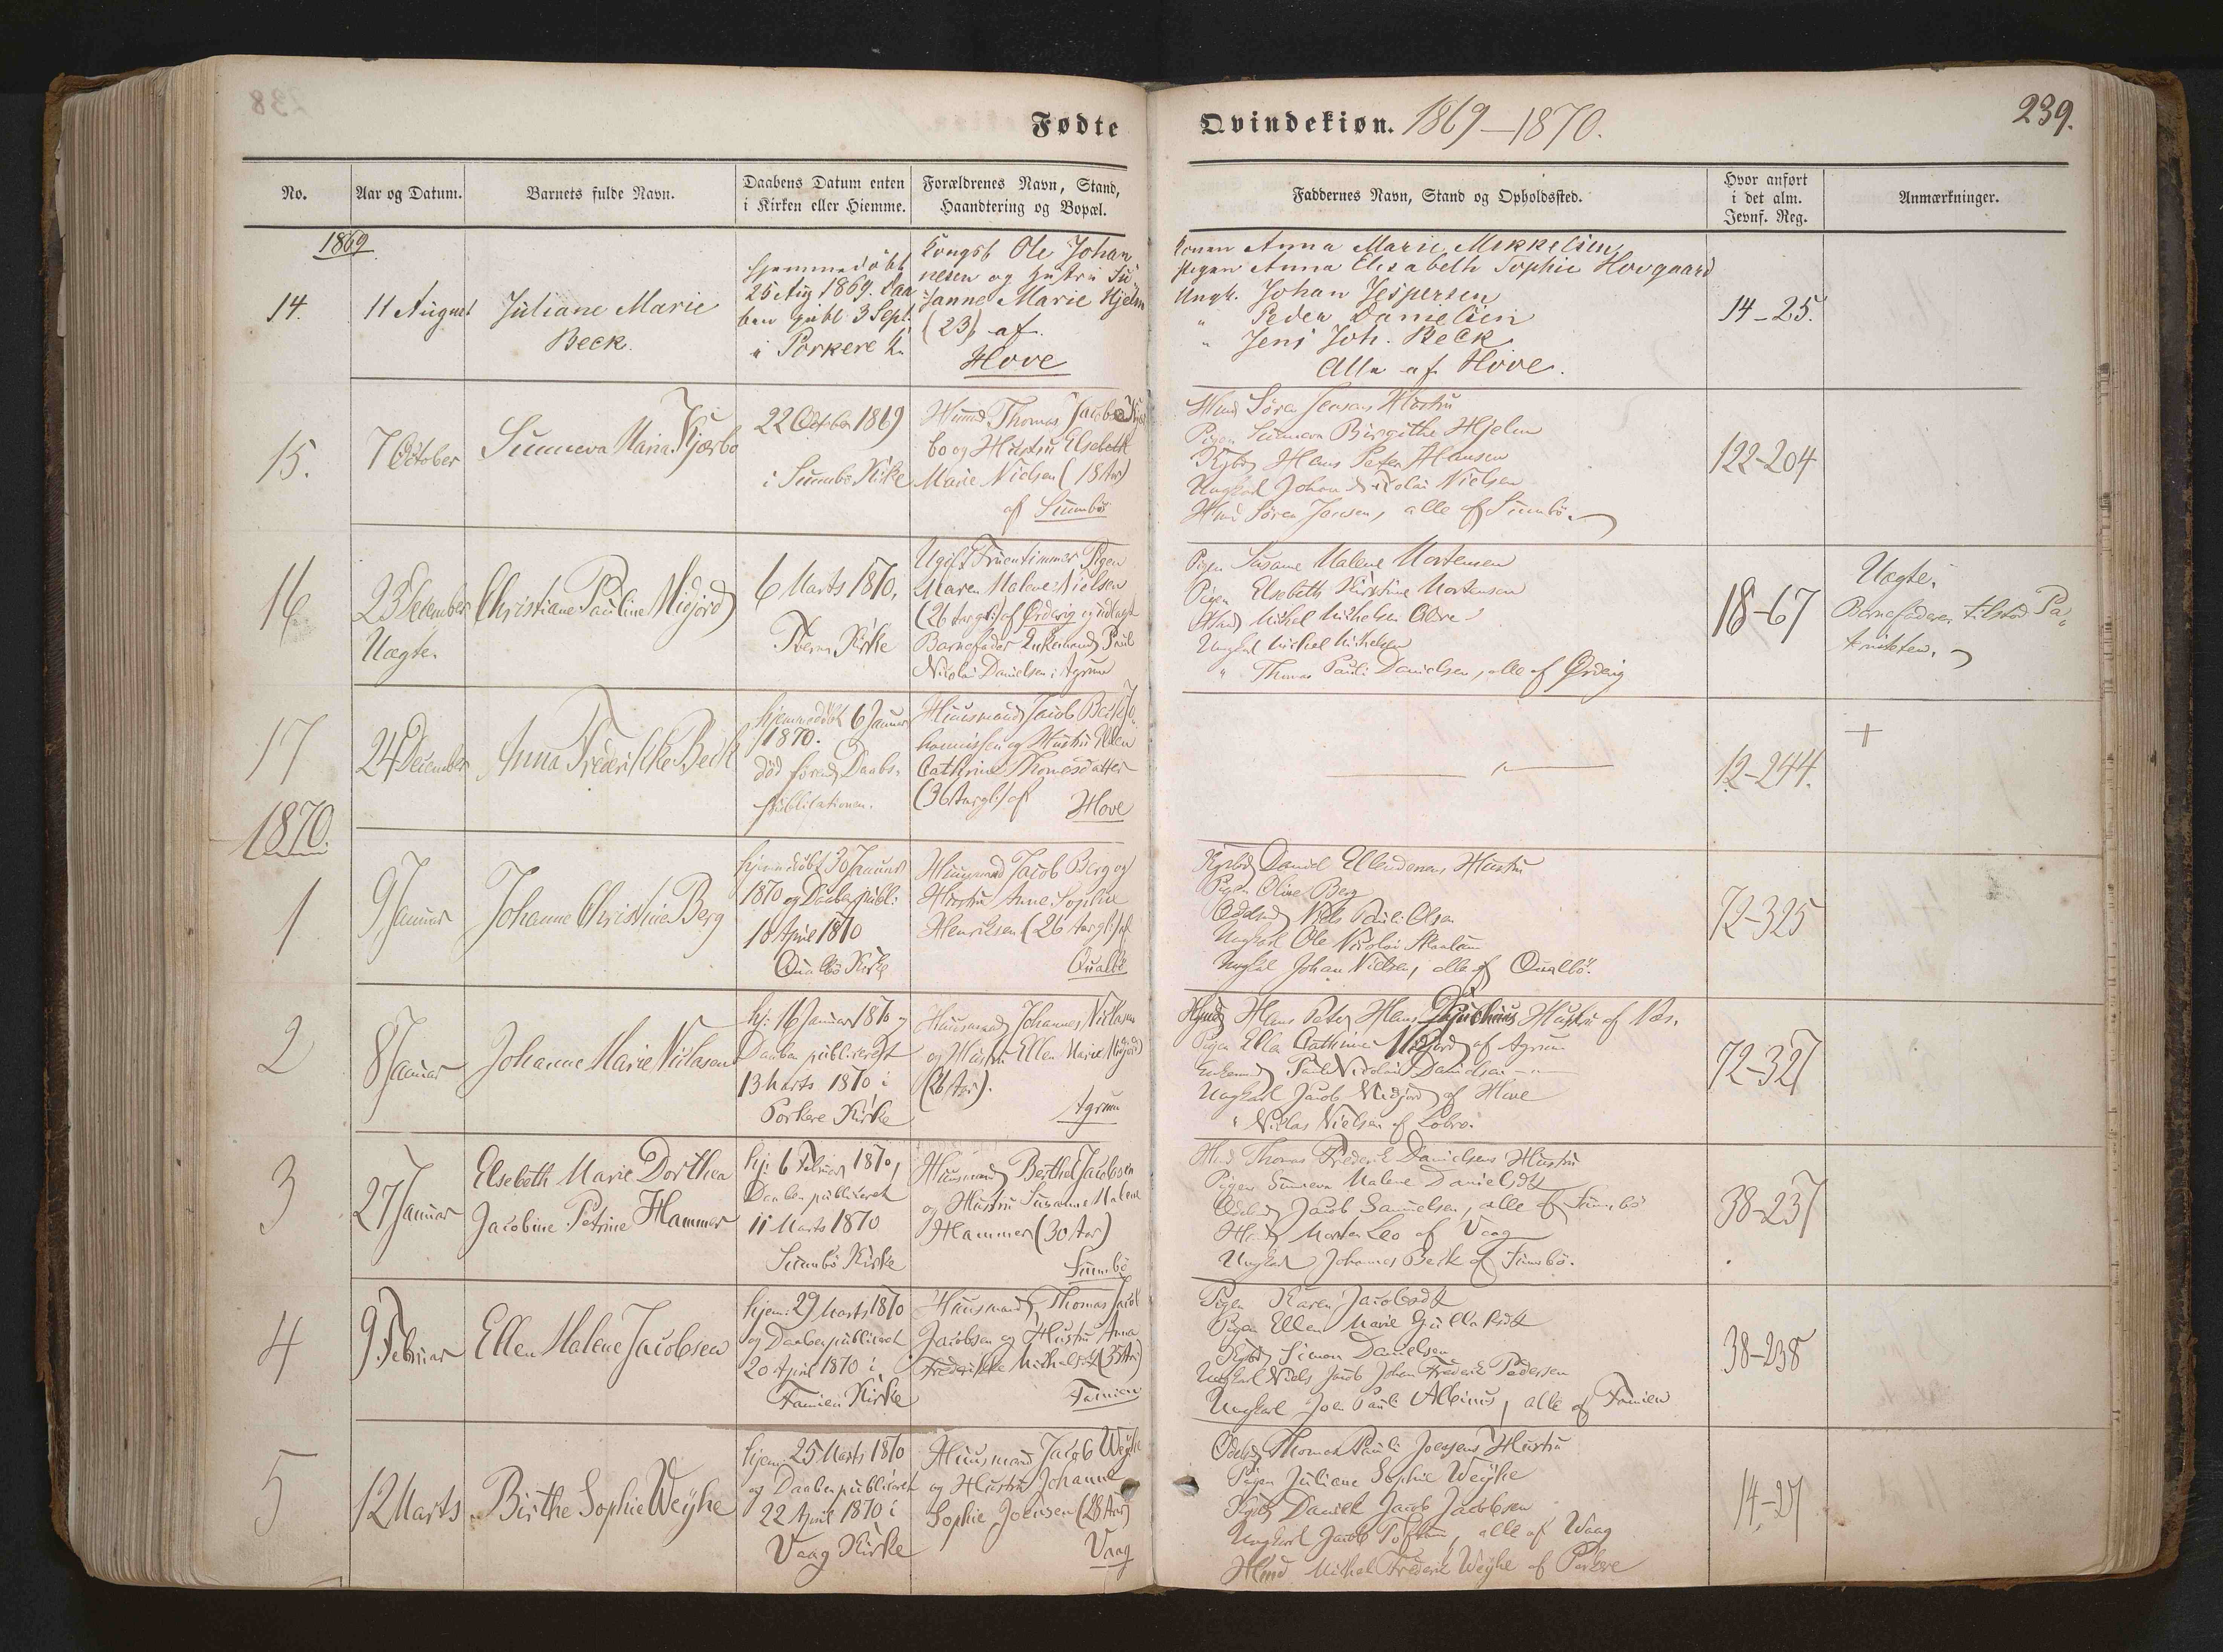 Fødte
Qvindekiøn. 1869-1870.
239.
No.
Aar og Datum.
Barnets fulde Navn.
Daabens Datum enten
i Kirken eller Hiemme.
Forældrenes Navn, Stand,
Haandtering og Bopæl.
Faddernes Navn, Stand og Opholdssted.
Hvor anført
i det alm.
Jevnf. Reg.
Anmærkninger.
1869
14.
11 August
Juliane Marie
Beck.
hjemmedøbt
25 Aug 1869. Daa
ben publ 3 Sept.
i Porkere K.
Kongsb Ole Johan
nesen og Hustru Su
sanne Marie Hjelm
(23) af
Hove
Konen Anna Marie Mikkelsen
Pigen Anna Elisabeth Sophie Hovgaard
Ungk. Johan Jespersen
" Peder Danielsen
" Jens Joh. Beck
Alle af Hove.
14-25.
15.
7 October
Sunneva Maria Kjærbo
22 October 1869
i Sumbø Kirke
Huusmd Thomas Jacobs Kjær
bo og Hustru Elsebeth
Marie Nielsen (18 Aar)
af Sumbø
Hmd Søren Jensens Hustru
Pigen Sunneva Birgithe Hjelm
Kgbd Hans Peter Hansen
Ungkarl Johan Nicolai Nielsen
Hmd Søren Joensen, alle af Sumbø.
122-204
16
23 December
Uægte.
Christiane Pauline Midjord
6 Marts 1870,
Tverå Kirke
Ugift Fruentimmer Pigen
Maren Malene Nielsen
(26 Aar gl:) af Ørdevig og udlagt
Barnefader Enkemand Poul
Nicolai Danielsen i Agrum
Pigen Susanne Malene Mortensen
Pigen Elsebeth Kirstine Mortensen
Hmd Mikkel Mikkelsen
Ungkarl Mickel Mickelsen
" Thomas Pauli Danielsen, alle af Ørdevig
18-67
Uægte.
Barnefaderen tilstod Pa-
terniteten.
17
24 December
Anna Frederikke Beck
hjemmedøbt 6 Januar
1870.
død førend Daabs-
publicationen.
Huusmand Jacob Beck Jo-
hannissen og Hustru Ellen
Cathrine Thomasdatter
(36 Aar gl:) af
Hove
12-244.
+
1870.
1
9 Januar
Johanne Christine Berg
hjemmedøbt 30 Januar
1870 og Daaben publ:
18 April 1870
Qualbø Kirke
Huusmand Jacob Berg og
Hustru Anne Sophie
Henriksen (26 Aar gl:) af
Qualbø
Kgsbd Daniel Ellendersens Hustru
Pigen Oline Berg
Odelsbd Niels Pauli Olsen
Ungkarl Ole Nicolai
Ungkarl Johan Nielsen, alle af Qualbø.
72-325
2
8 Januar
Johanne Marie Niclasen
hj: 16 Januar 1870 og
Daaben publiceret
13 Marts 1870 i
Porkere Kirke
Huusmand Johannes Niclasen
og Hustru Ellen Marie Midjord
(26 Aar).
Agrum
Hans Peter Hans Hustru af Næs.
Pigen Ella Cathrine Midjord af Agrum
Enkemd Paul Nicolai Danielsen -"-
Ungkarl Jacob Midjord af Hove
" Niclas Nielsen af Lobro.
72-327
3
27 Januar
Elsebeth Marie Dorthea
Jacobine Petrine Hammer
hj: 6 Februar 1870,
Daaben publiceret
11 Marts 1870
Sumbø Kirke
Huusmand Berthel Jacobsen
og Hustru Susanne Malene
Hammer (30 Aar)
Sumbø
Hmd Thomas Frederik Danielsens Hustru
Pigen Sunneva Malene Danielsdt
Odelsbd Jacob Samuelsen, alle af Sumbø
Hmd Morten Leo af Vaag
Ungkarl Johannes Beck af Sumbø.
38-237
4
9 Februar
Ellen Malene Jacobsen
hjem: 29 Marts 1870
og Daaben publiceret
20 April 1870 i
Famien Kirke
Huusmand Thomas Jacob
Jacobsen og Hustru Anna
Frederikke Michelsen (35 Aar)
Famien
Pigen Karen Jacobsdt
Pigen Ellen Marie Gullaksdt
Kgsbd Simon Danielsen
Ungkarl Niels Jacob Johan Frederik Pedersen
Ungkarl Joen Pauli Albinus, alle af Famien
38-238
5
12 Marts
Birthe Sophie Weyhe
hjem 25 Marts 1870
og Daaben publiceret
22 April 1870 i
Vaag Kirke
Huusmand Jacob Weyhe
og Hustru Johanne
Sophie Joensen (28 Aar)
Vaag
Odelsbd Thomas Pauli Joensens Hustru
Pigen Juliane Sophie Weyhe
Kgsbd Daniel Jacob Jacobsen
Ungkarl Jacob, alle af Waag
Hmd Michel Frederik Weyhe af Porkere
14-27